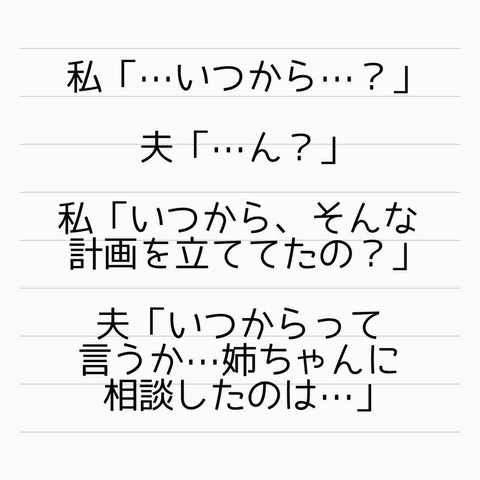 私「…いつから…？」
夫「…ん？」
私「いつから、そんな
計画を立ててたの？」
夫「いつからって
言うか…姉ちゃんに
相談したのは…」